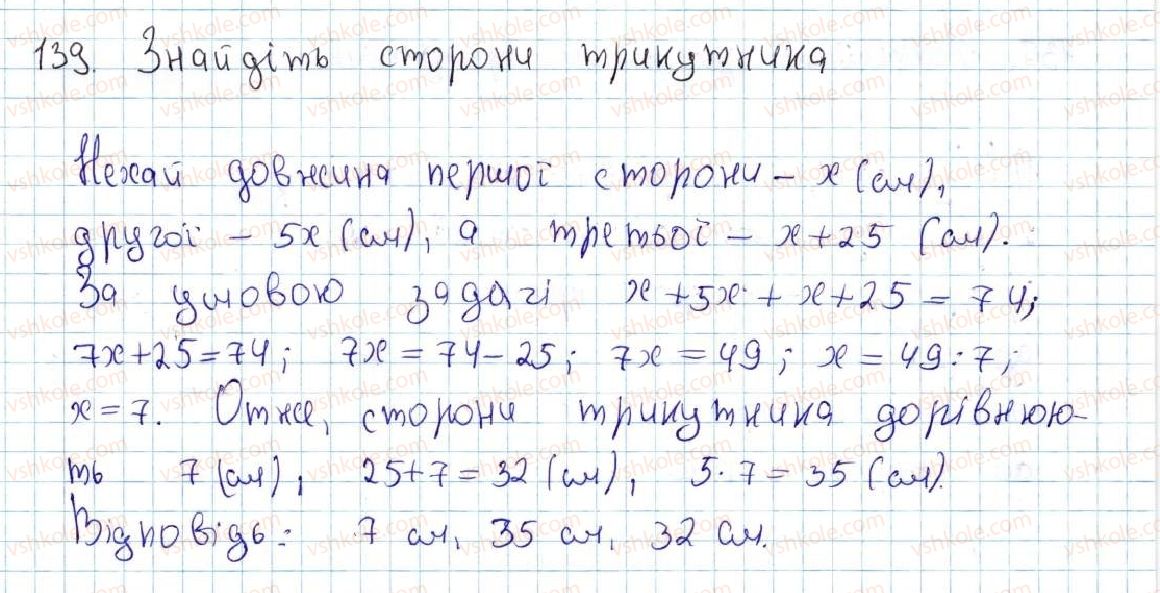 139. Знайдіть сторони трикутника
Нехай довжина першої сторони – x (см),
другої – 5x (см), а третьої – x + 25 (см).
За умовою задачі x + 5x + x + 25 = 74;
7x + 25 = 74; 7x = 74 – 25; 7x = 49; x = 49 : 7;
x = 7. Отже, сторони трикутника дорівнюю-
ть 7 (см), 25 + 7 = 32 (см), 5 · 7 = 35 (см).
Відповідь: 7 см, 35 см, 32 см.